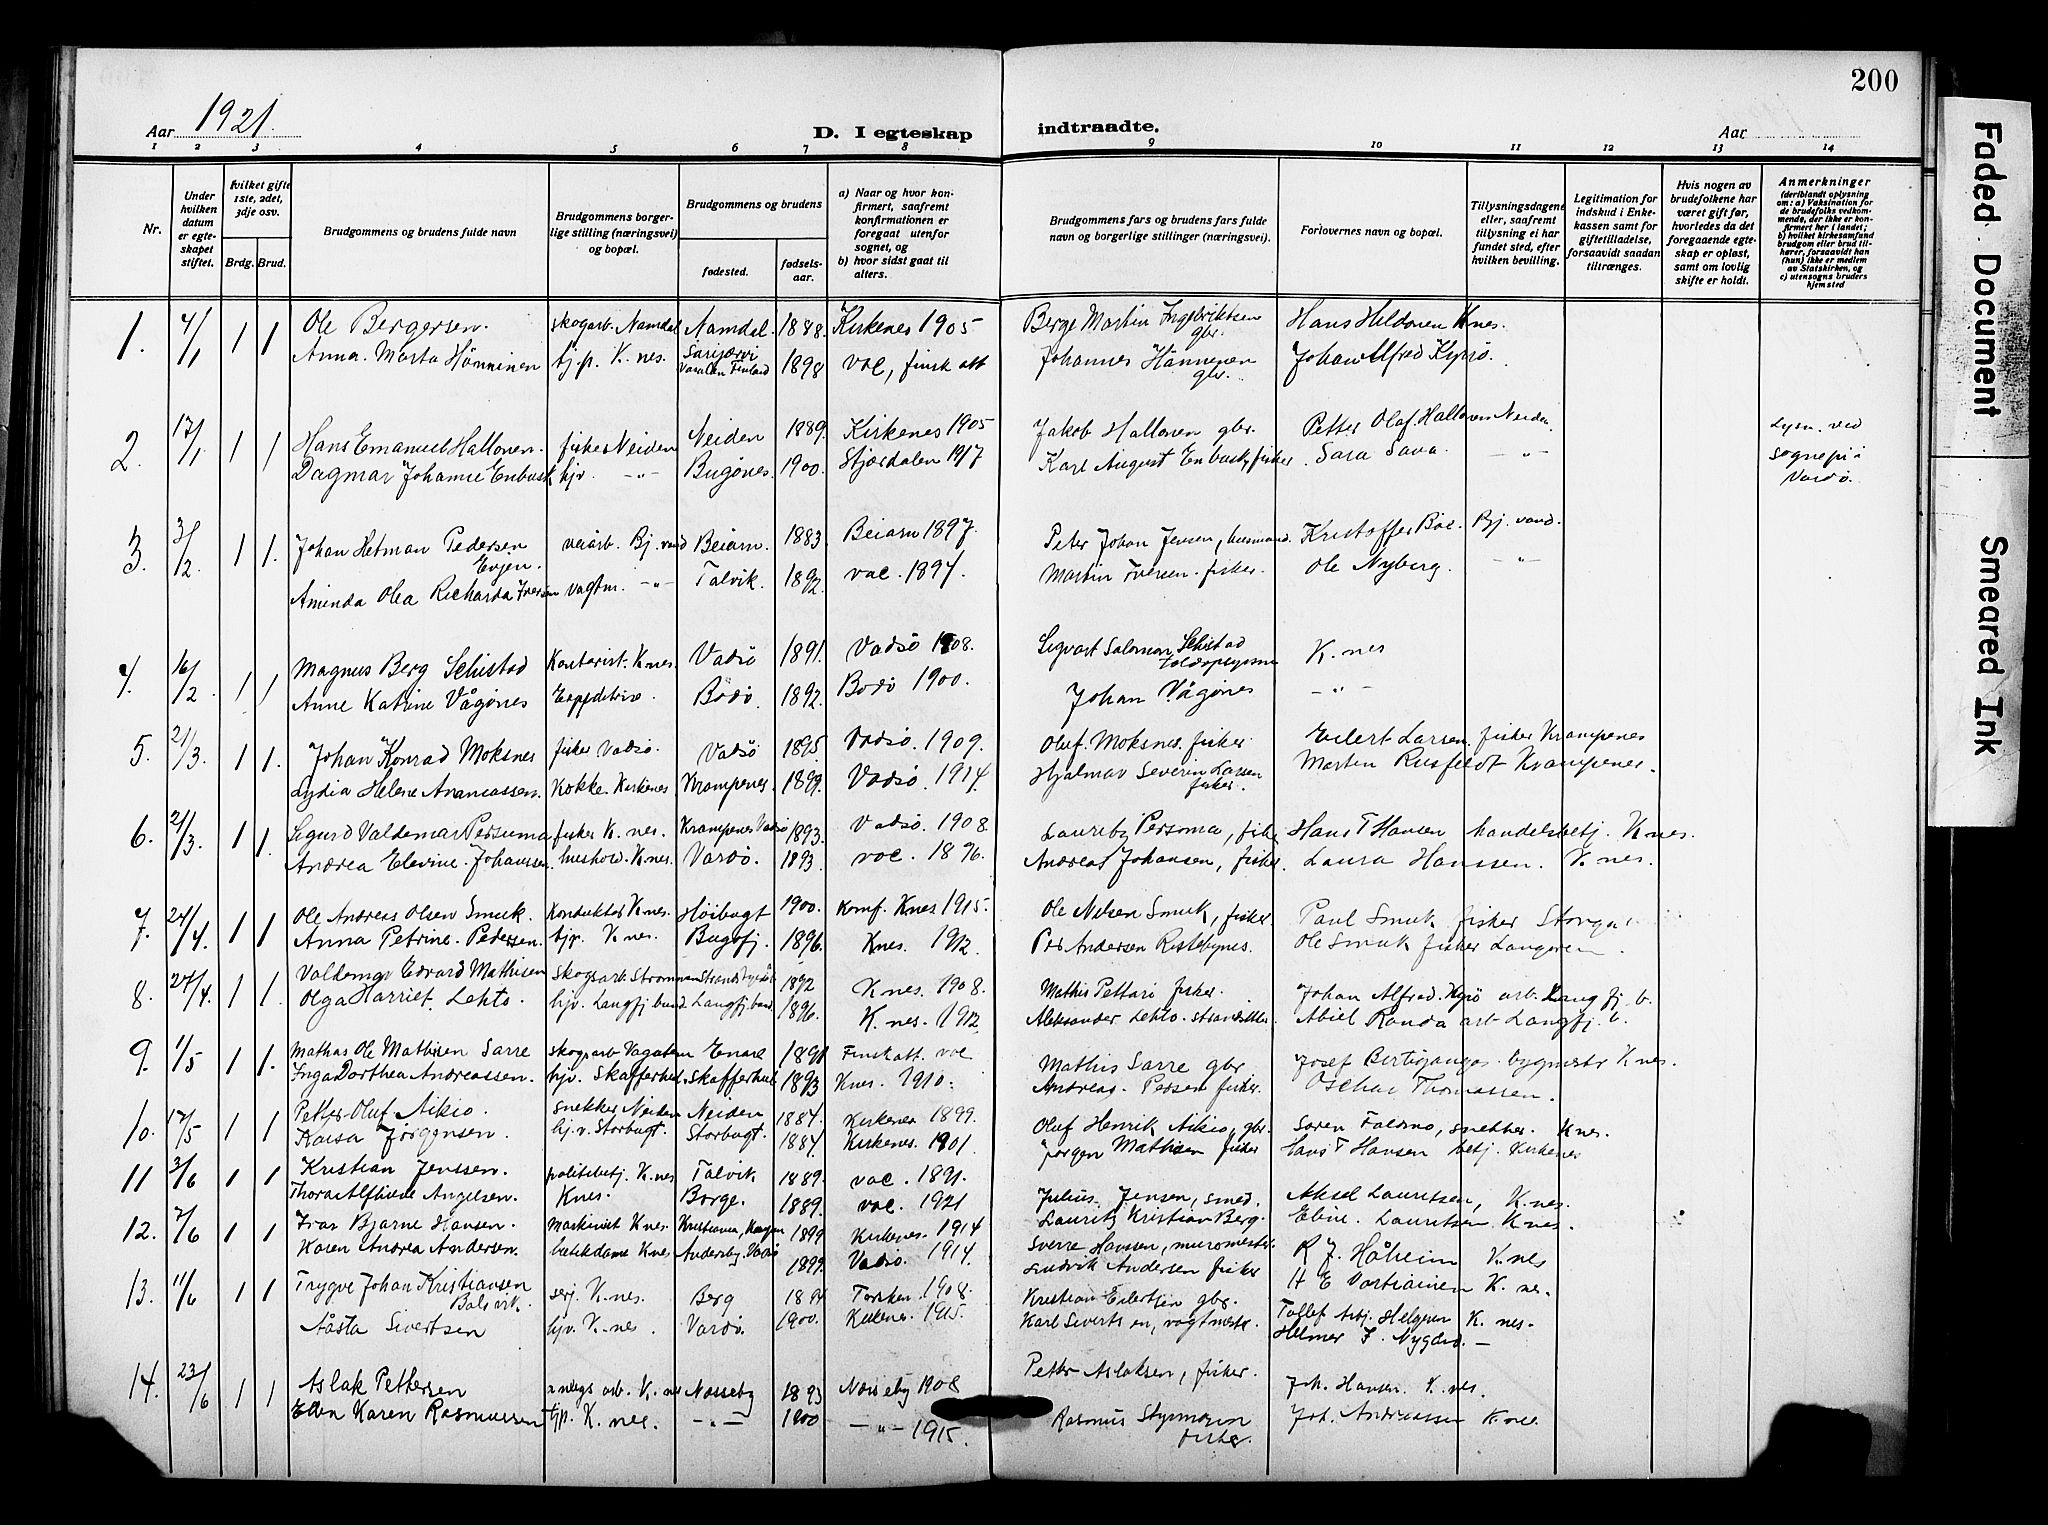 200
Aar 1921.
D. I egteskap indtraadte.
Aar
1 2 3 4 5 6 7 8 9 10 11 12 13 14
Nr.
Under hvilken datum er egteskapet stiftet.
Hvilket gifte 1ste, 2det, 3dje osv.
Brdg. Brud.
Brudgommens og brudens fulde navn
Brudgommens borgerlige stilling (næringsvei) og bopæl.
Brudgommens og brudens
fødested.
fødselsaar.
a) Naar og hvor konfirmert, saafremt konfirmationen er foregaat utenfor sognet, og
b) hvor sidst gaat til alters.
Brudgommens fars og brudens fars fulde navn og borgerlige stillinger (næringsvei).
Forlovernes navn og bopæl.
Tillysningsdagene eller, saafremt tillysning ei har fundet sted, efter hvilken bevilling.
Legitimation for indskud i Enkekassen samt for giftetilladelse, forsaavidt saadan tiltrænges.
Hvis nogen av brudefolkene har været gift før, hvorledes da det foregaaende egteskap er opløst, samt om lovlig skifte er holdt.
Anmerkninger
(deriblandt oplysning om: a) Vaksination for de brudefolks vedkommende, der ikke er konfirmert her i landet; b) hvilket kirkesamfund brudgom eller brud tilhører, forsaavidt han (hun) ikke er medlem av Statskirken, og c) utensogns bruders hjemsted
1. 4/1 1 1 Ole Bergersen. skogarb. Namdal Namdal. 1888. Kirkenes 1905 Berge Martin Ingebriktsen gbr. Hans Hildonen K.nes.
Anna Marta Hänninen tj.p. K.nes. 1898 vac, finsk att Johannes Hänninen gbr. Johan Alfred Kyrö.
2. 17/1 1 1 Hans Emanuel Hallonen. fisker Neiden Neiden 1889. Kirkenes 1905 Jakob Hallonen gbr. Petter Olaf Hallonen Neiden. Lysn. ved
Dagmar Johanne Enbusk hjv. -"- Bugønes. 1900. Stjørdalen 1917 Karl August Enbusk, fisker. Sara Sava. -"- sognepr i Vardø.
3. 3/2 1 1. Johan Hetman Pedersen Evjen. veiarb. Bj.vand Beiarn. 1883. Beiarn 1897. Peter Johan Jensen, husmand. Kristoffer Boe. Bj. vand.
Aminda Olea Richarda Iversen vagtm. -"- Talvik. 1892. vac. 1897. Martin Iversen. fisker. Ole Nyberg. -"-
4. 16/2 1 1 Magnus Berg Schistad Kontorist. K.nes. Vadsø 1891. Vadsø 1908. Sigvart Salomon Schistad Toldopsynsm K.nes
Anne Katrine Vågønes Expeditrise. Bodø. 1892. Bodø 1900. Johan Vågønes -"-
5. 21/3. 1 1. Johan Konrad Moksnes fisker Vadsø. Vadsø 1895. Vadsø. 1909. Oluf. Moksnes. fisker Eilert Larsen. fisker Krampenes
Lydia Helene Ananiassen. Kokke Kirkenes Krampenes. 1899. Vadsø. 1914. Hjalmar Severin Larsen fisker. Martin Rusfeldt Krampenes.
6. 21/3. 1 1. Sigurd Valdemar Persuma fisker K.nes. Krampenes Vadsø 1893. Vadsø. 1908. Persoma, fisk Hans T Hansen handelsbetj. K.nes.
Andrea Elevine Johanssen hushold. K.nes. Vardø. 1893 vac. 1896. Andreas Johansen, fisker. Laura Hanssen. K.nes.
7. 24/4. 1 1 Ole Andreas Olsen Smuk. Konduktør K.nes. Høibugt 1900. Konf. Knes 1915. Ole Nilsen Smuk, fisker Paul Smuk fisker
Anna Petrine Pedersen. tjp. K.nes. Bugøfj. 1896. Knes. 1912. Per Andersen Ristebynes. Ole Smuk fisker Langøren.
8. 24/4. 1 1. Valdemar Edvard Mathisen skogsarb. 1892 K.nes. 1908. Mathis Pettari fisker. Johan Alfred Kyrö arb. Langfj. b.
Olga Harriet Lehto. hjv. Langfj.bund Langfj.bund 1896. K.nes. 1912. Aleksander Lehto. Abiel Randa arb Langfj. b.
9. 1/5 1 1. Mathis Ole Mathisen Sarre skogsarb Enare 1891 Finsk att. vac Mathis Sarre gbr Josef bygmestr K.nes.
Inga Dorthea Andreassen. hjv. Skafferhul. Skafferhul. 1893 Knes. 1910. Andreas. Persen fisker. Oschar Thomassen.
10. 17/5 1 1 Petter Oluf Aikio. snekker Neiden Neiden 1884. Kirkenes 1899. Oluf Henrik Aikio, gbr. Søren snekker. K.nes.
Kaisa Jörgensen. hj.v. Storbugt. Storbugt. 1884. Kirkenes. 1901. Jørgen Mathisen fisker Hans T Hansen betj. Kirkenes
11 3/6 1 1 Kristian Jenssen. politibetj. K.nes Talvik 1889. vac. 1891. Julius Jensen, smed. Aksel Lauritsen, K.nes.
Angelsen. Knes. Borge. 1889. vac. 1921 Lauritz Kristian Berg. Eline. Lauritsen K.nes.
12. 7/6 1 1 Ivar Bjarne Hansen. maskinist K.nes. 1899 Kirkenes. 1914 Sverre Hanssen, murmester. R J. Håheim K.nes
Karen Andrea Andersen. butikdame K.nes Andersby, Vadsø 1899. Vadsø. 1914. Ludvik Andersen fisker H E Vartiainen K.nes.
13. 11/6 1 1 Trygve Johan Kristiansen Balsvik. serj. K.nes. Berg Torsken. 1908. Kristian Eilertsen gbr. Tollef K.nes-
Aasta Sivertsen hjv. K.nes. Vardø. 1900. Kirkenes. 1915. Karl Sivertsen, vagtmestr. Helmer F. Nygård. -
14. 23/6 1 1 Aslak Pettersen anlegs arb. K.nes Nesseby 1893 Nesseby 1908 Petter Aslaksen, fisker. Joh. Hansen. K.nes.
Ellen Karen Rasmussen tjp. K.nes. -"- 1900 -"- 1915. Rasmus fisker. Joh. Andreassen K.nes.
Faded Document
Smeared Ink